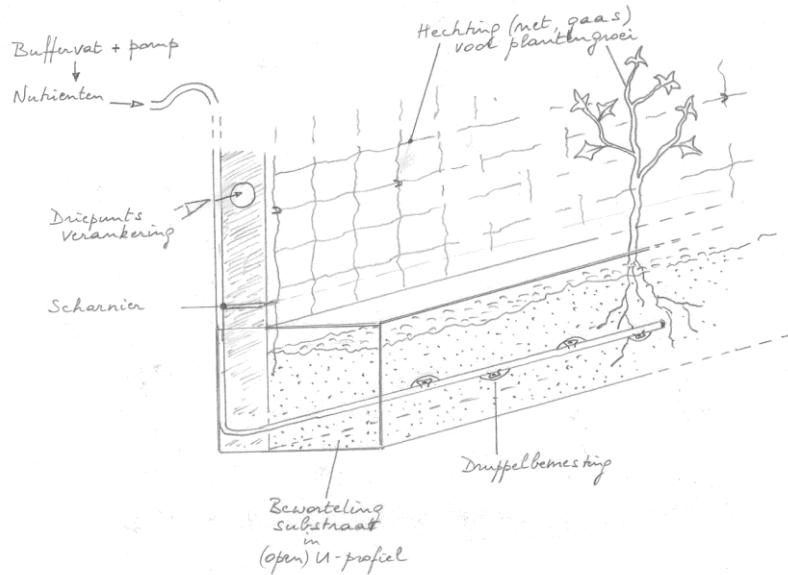 Buffervat + pomp
Nutriënten
Hechting (net, gaas)
voor plantengroei
Driepunts
verankering
Scharnier
Druppelbemesting
Beworteling
substraat
in
(open) U-profiel